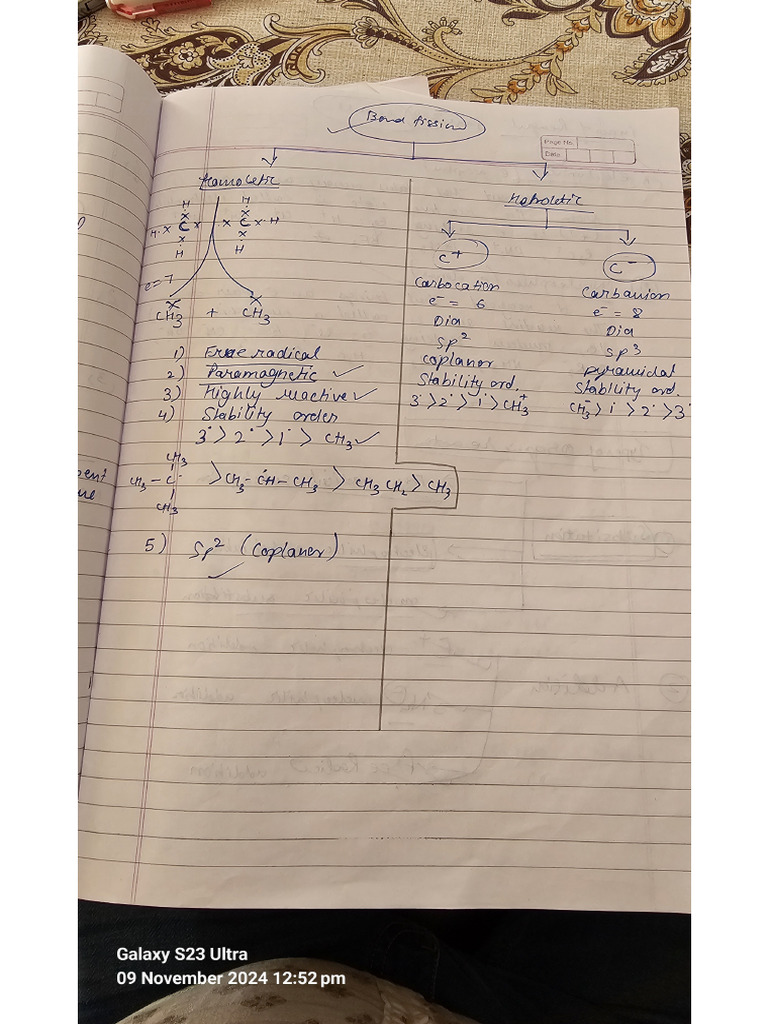 Bond fission
Page No.
Date
Homoletic
Hetroletic
H H
H x C x x C x H
H H
e = 7
CH3 + CH3
1) Free radical
2) Paramagnetic ✓
3) Highly reactive ✓
4) Stability order
3° > 2° > 1° > CH3 ✓
CH3
CH3 - C > CH3 - CH - CH3 > CH3 CH2 > CH3
CH3
5) Sp2 (Coplaner)
✓
C+
Carbocation
e- = 6
Dia
Sp2
Coplanar
Stability ord.
3° > 2° > 1° > CH3+
C-
Carbanion
e- = 8
Dia
Sp3
pyramidal
Stability ord.
CH3 > 1° > 2° > 3°
Galaxy S23 Ultra
09 November 2024 12:52 pm